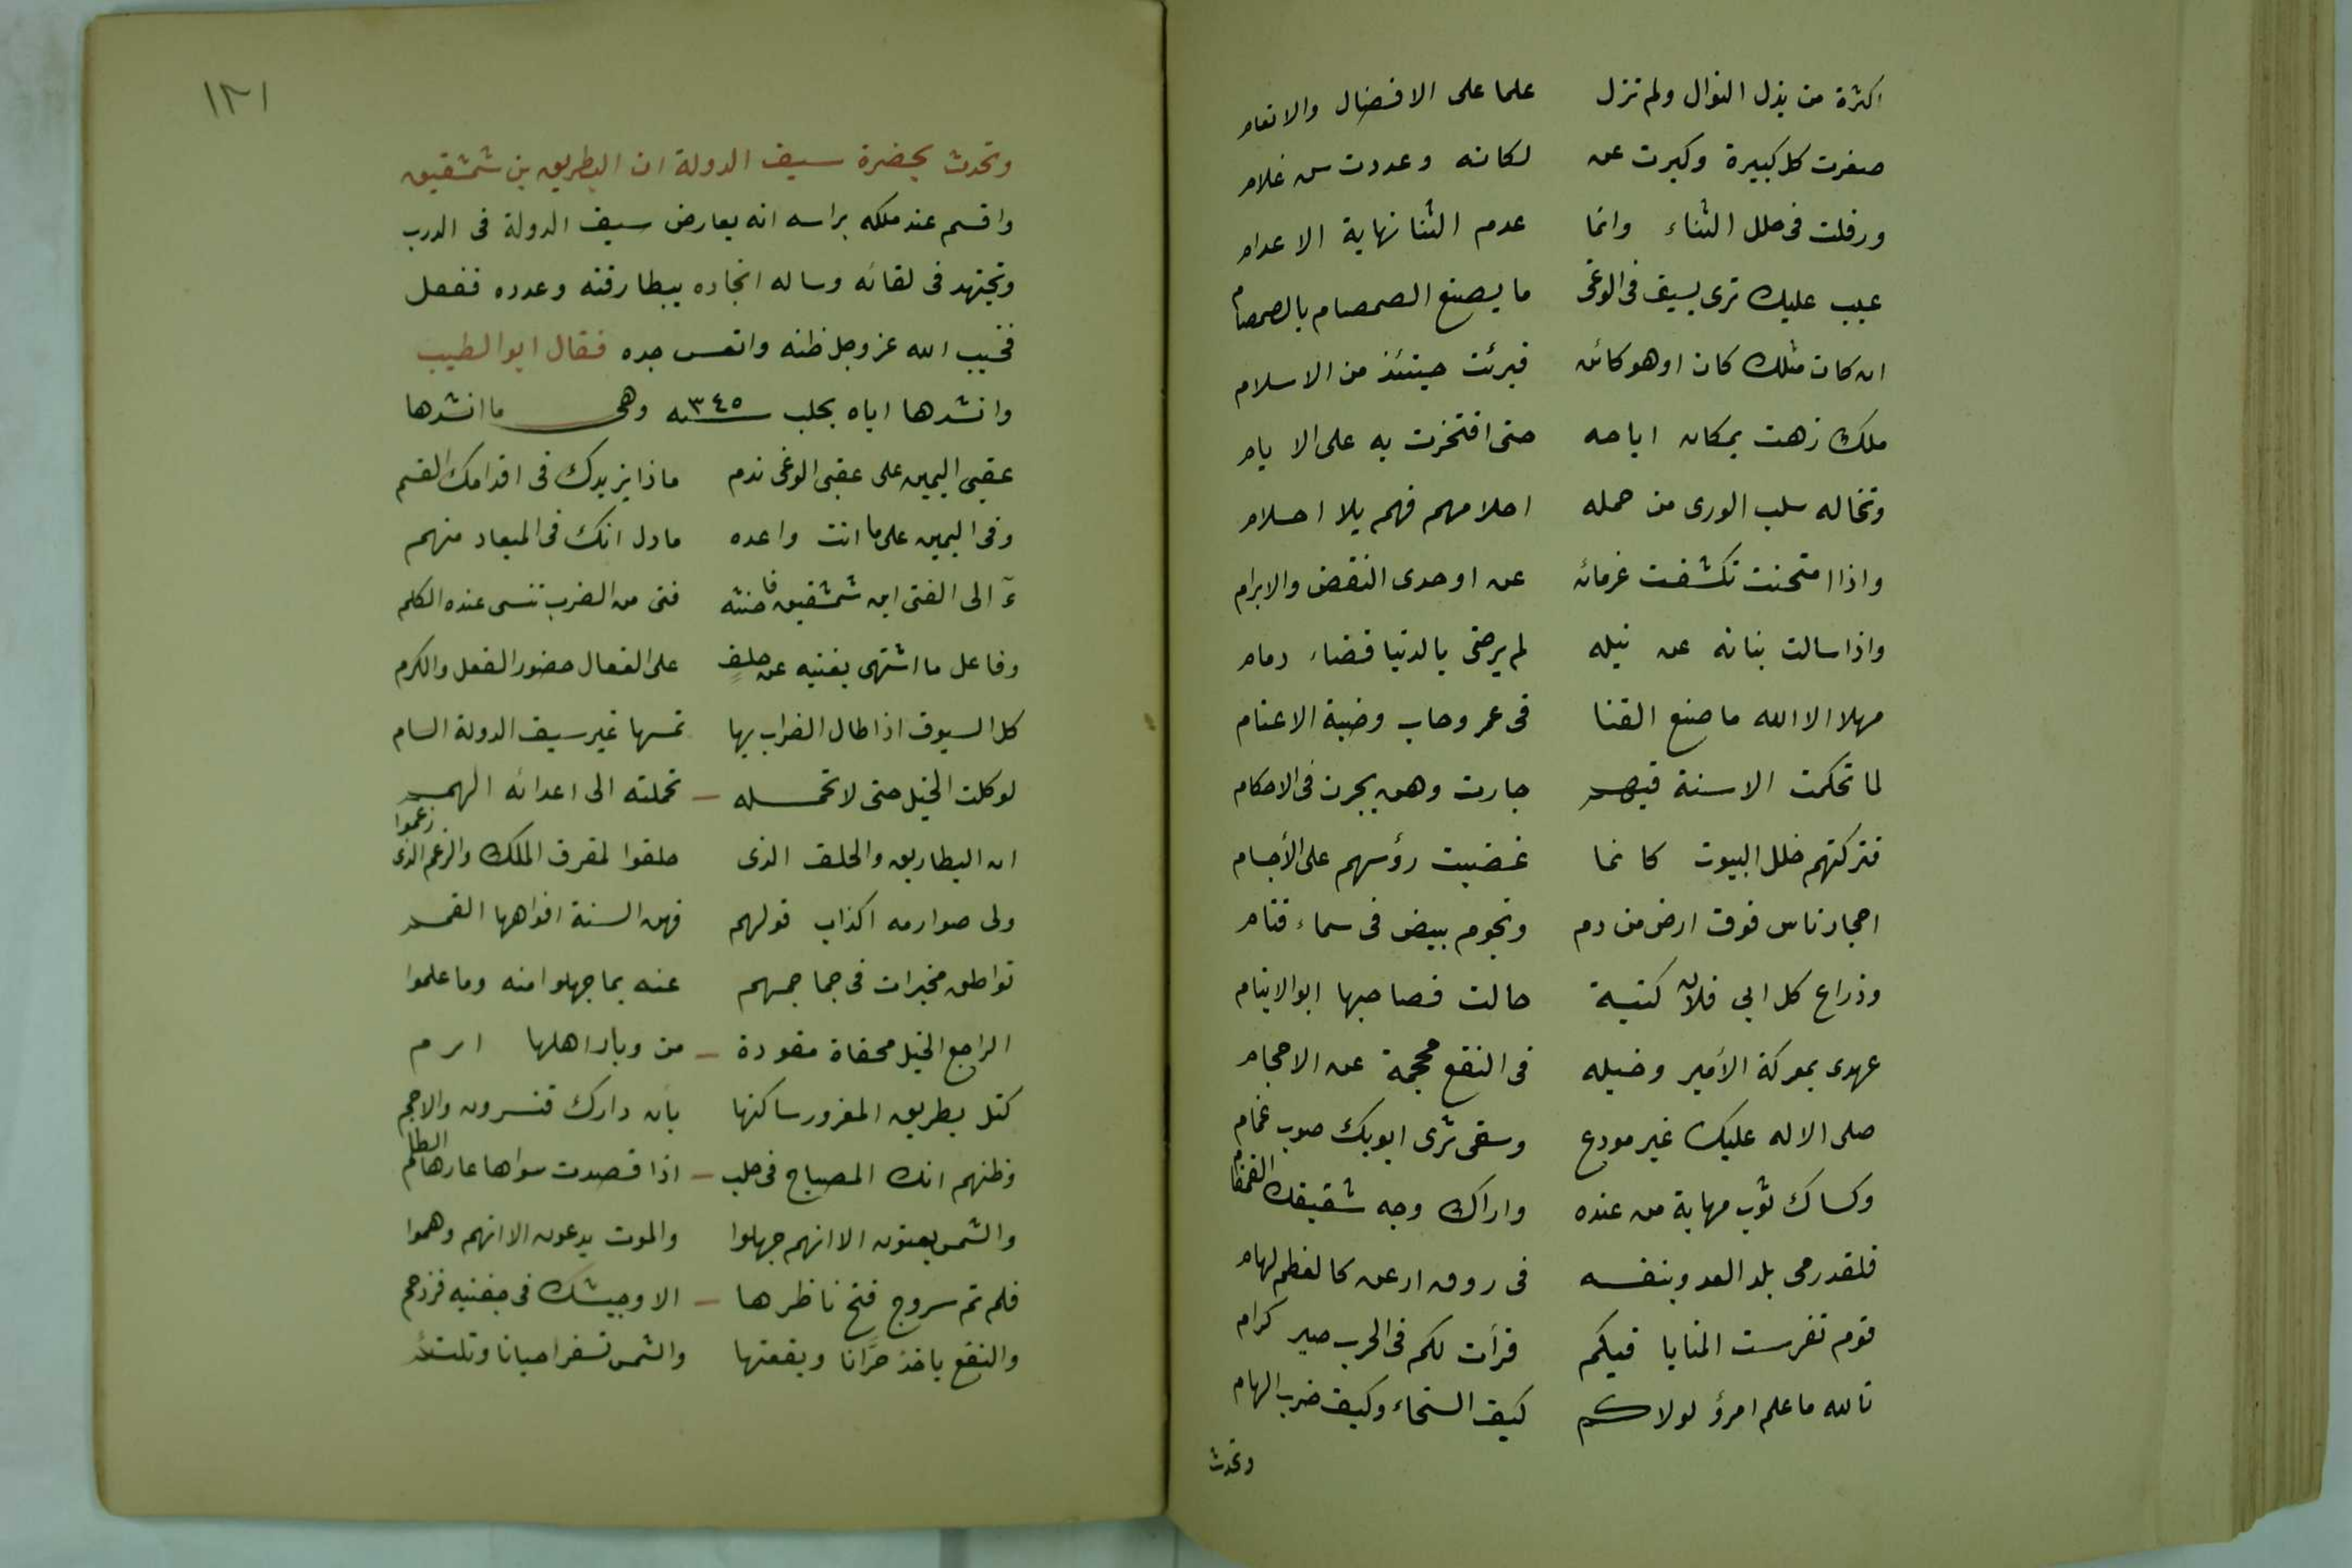 اكثرة من بذل النوال ولم تزل علما على الافضال والانعام
صغرت كل كبيرة وكبرت عن لكانه وعددت سن غلام
ورفلت فى حلل الثناء وانما عدم الثنا نهاية الاعدام
عيب عليك ترى بسيف فى الوغى ما يصنع الصمصام بالصمصام
ان كان مثلك كان او هو كائن فبرئت حينئذ من الاسلام
ملك زهت بمكان ايامه حتى افتخرت به على الايام
وتخاله سلب الورى من حمله احلامهم فهم بلا احلام
واذا امتحنت تكشفت عزماته عن اوحدى النقض والابرام
واذا سالت بنانه عن نيله لم يرضى بالدنيا قضاء دمام
مهلا الا الله ما صنع القنا فى عمرو حاب وضبة الاغتام
لما تحكمت الاسنة فيهم جارت وهن يجرن فى الاحكام
فتركتهم خلل البيوت كانما غضبت رؤسهم على الأجسام
احجار ناس فوق ارض من دم ونجوم بيض فى سماء قتام
وذراع كل ابي فلان كنية حالت فصاحبها ابو الايتام
عهدى بمعركة الأمير وخيله فى النقع محجمة عن الاحجام
صلى الاله عليك غير مودع وسقى ثرى ابويك صوب غمام
وكساك ثوب مهابة من عنده واراك وجه شقيقك القمقام
فلقد رمى بلد العدو بنفسه فى روق ارعن كالغطم لهام
قوم تفرست المنايا فيكم فرأت لكم فى الحرب صبر كرام
تالله ما علم امرؤ لولاكم كيف السخاء وكيف ضرب الهام
وتحدث
١٢١
وتحدث بحضرة سيف الدولة ان البطريق بن شمشقيق
واقسم عند ملكه براسه انه يعارض سيف الدولة فى الدرب
وتجتهد فى لقائه وساله انجاده ببطارقته وعدده ففعل
فخيب الله عز وجل ظنه واتعس جده فقال ابو الطيب
وانشدها اياه بحلب سنه ٣٤٥ وهى ما انشدها
عقبى اليمين على عقبى الوغى ندم ماذا يزيدك فى اقدامك القسم
وفى اليمين على ما انت واعده مادل انك فى الميعاد منهم
آلى الفتى ابن شمشقيق فاحنثه فتى من الضرب تنسى عنده الكلم
وفاعل ما اشتهى يغنيه عن حلف على الفعال حضور الفعل والكرم
كل السيوف اذا طال الضراب بها تمسها غير سيف الدولة السام
لو كلت الخيل حتى لا تحمله تحملته الى اعدائه الهمم
ان البطاريق والحلف الذى حلفوا لمفرق الملك والزعم الذى زعموا
ولى صوارمه اكذاب قولهم فهن السنة افواهها القمم
نواطق مخبرات فى جماجمهم عنه بما جهلوا منه وما علموا
الراجع الخيل محفاة مقودة من وبار اهلها ارم
كتل بطريق المغرور ساكنها بان دارك قنسرون والاجم
وظنهم انك المصباح فى حلب اذا قصدت سواها عارها الظلم
والشمس يعنون الا انهم جهلوا والموت يدعون الا انهم وهموا
فلم تم سروج فتح ناظرها الا وجيشك فى جفنيه فزدحم
والنقع ياخذ حرّانا وبقعتها والشمس تسفر احيانا وتلتثم